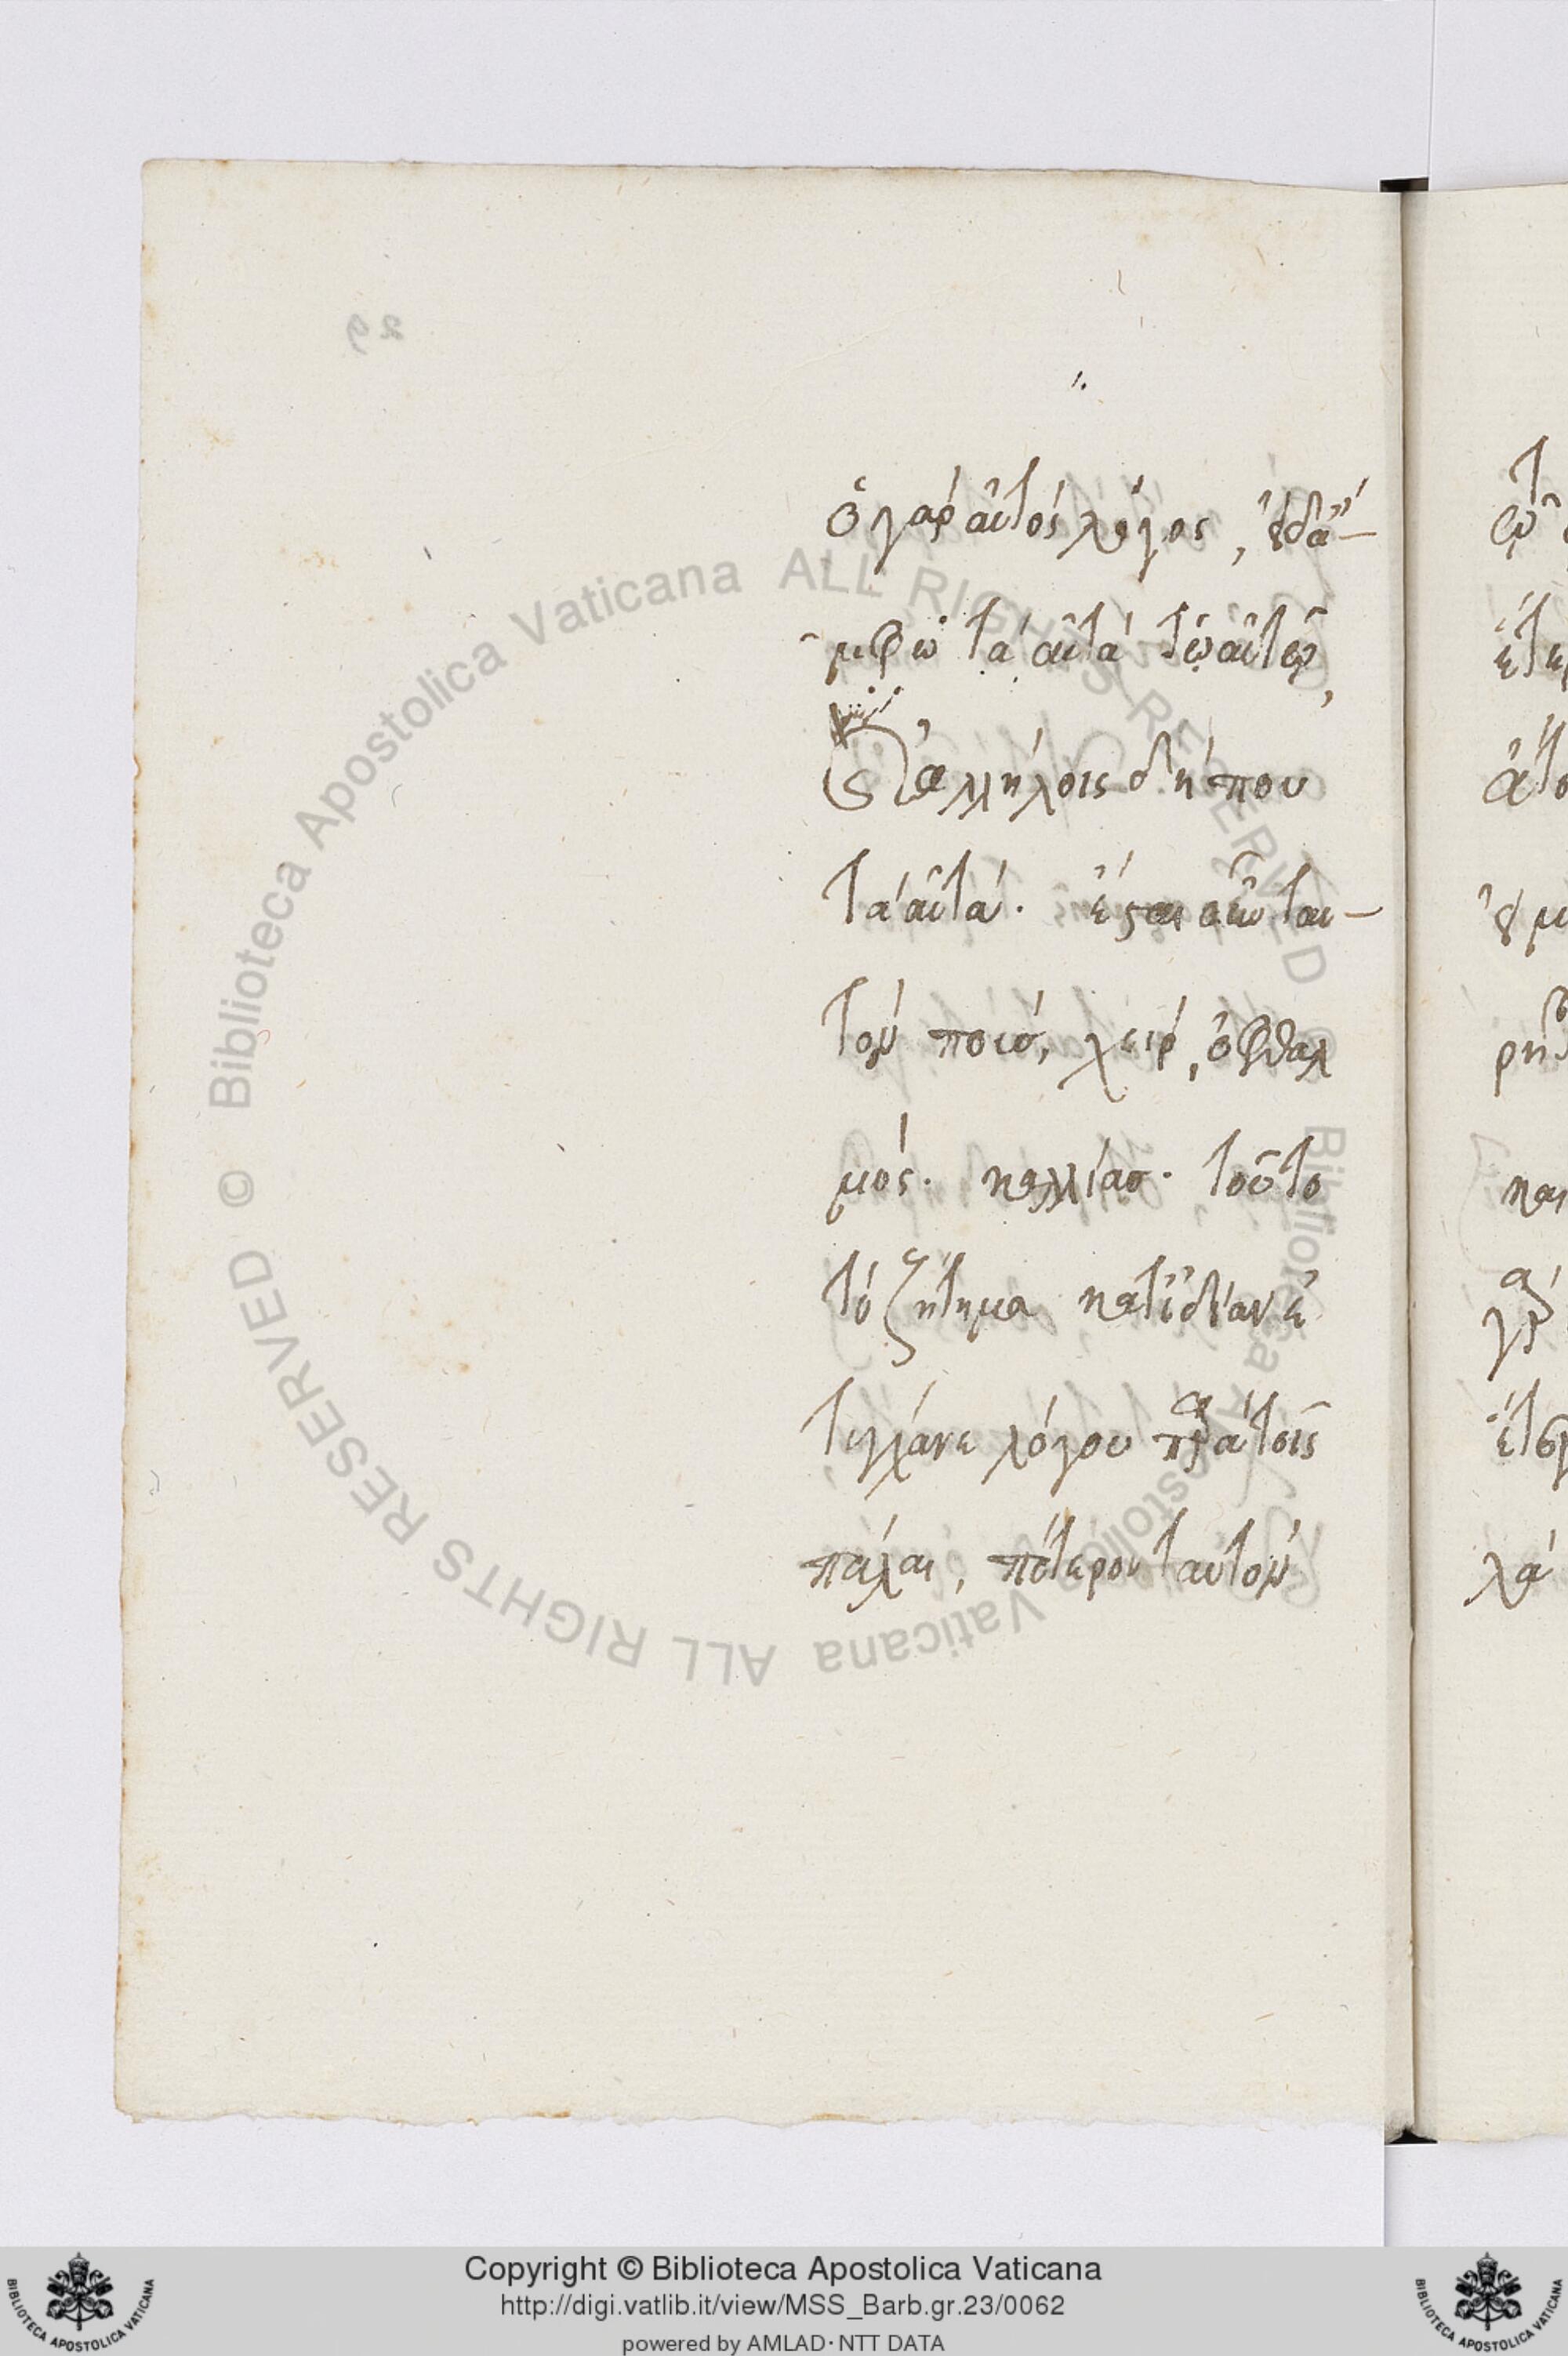 29
ὁ γὰρ αὐτὸς λόγος, οὐδ' ἄ-
μφω τὰ αὐτὰ τῷ αὐτῷ,
καὶ ἀλλήλοις δήπου
τὰ αὐτά. ἔσται οὖν ταυ-
τὸν ποῦσ, χεὶρ, ὀφθαλ
μός. καλλίασ. τοῦτο
τὸ ζήτημα κατ' ἰδίαν ἐ
τύγχανε λόγου παρ' αὐτοῖς
πάλαι, πότερον ταυτὸν
Biblioteca Apostolica Vaticana ALL RIGHTS RESERVED ©
Biblioteca Apostolica Vaticana ALL RIGHTS RESERVED ©
Copyright © Biblioteca Apostolica Vaticana
http://digi.vatlib.it/view/MSS_Barb.gr.23/0062
powered by AMLAD · NTT DATA
BIBLIOTECA APOSTOLICA VATICANA
BIBLIOTECA APOSTOLICA VATICANA